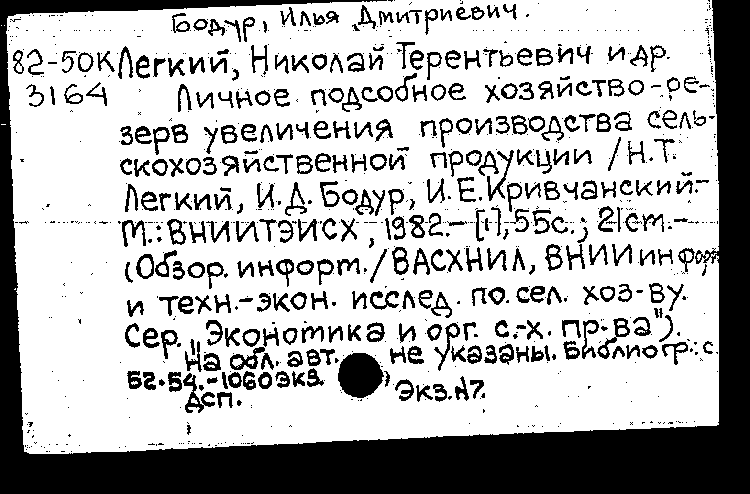 Бодур, Илья Дмитриевич.
82-50К Легкий, Николай Терентьевич и др.
3164 Личное подсобное хозяйство-ре-
зерв увеличения производства сель-
скохозяйственной продукции / Н.Т.
Легкий, И.Д. Бодур, И.Е. Кривчанский.-
М.: ВНИИТЭИСХ, 1982.- [1], 55с.; 21см.-
(Обзор. информ. / ВАСХНИЛ, ВНИИ информ
и техн.-экон. исслед. по сел. хоз-ву.
Сер. „Экономика и орг. с.-х. пр-ва").
На обл. авт. не указаны. Библиогр.: с.
52-54.-1060 экз.
Дсп. Экз.N7.